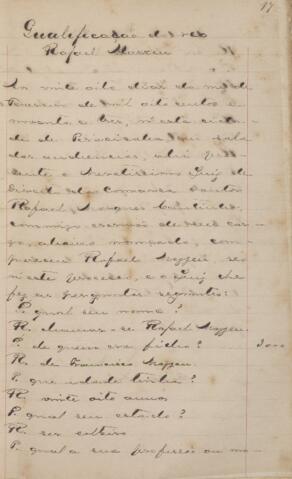 17
Qualificação do réo
Rafael
Aos vinte oito dias do mez de
Fevereiro de mil oito centos e
noventa e tres, nesta cida-
de de Piracicaba em sala
das audiencias, ahi pre-
sente o Meretissimo Juiz de
Direito da Comarca Doutor
Rafael Marques Coutinho,
commigo escrivão de seu car-
go, abaixo nomeado, com-
pareceu Rafael réo
neste processo, e o Juiz lhe
fez as perguntas seguintes:
P. qual seu nome?
R. chamar-se Rafael
P. de quem era filho? 3000
R. de Francisco
P. que idade tinha?
R. vinte oito annos
P. qual seu estado?
R. ser solteiro
P. qual a sua profissão ou mo-